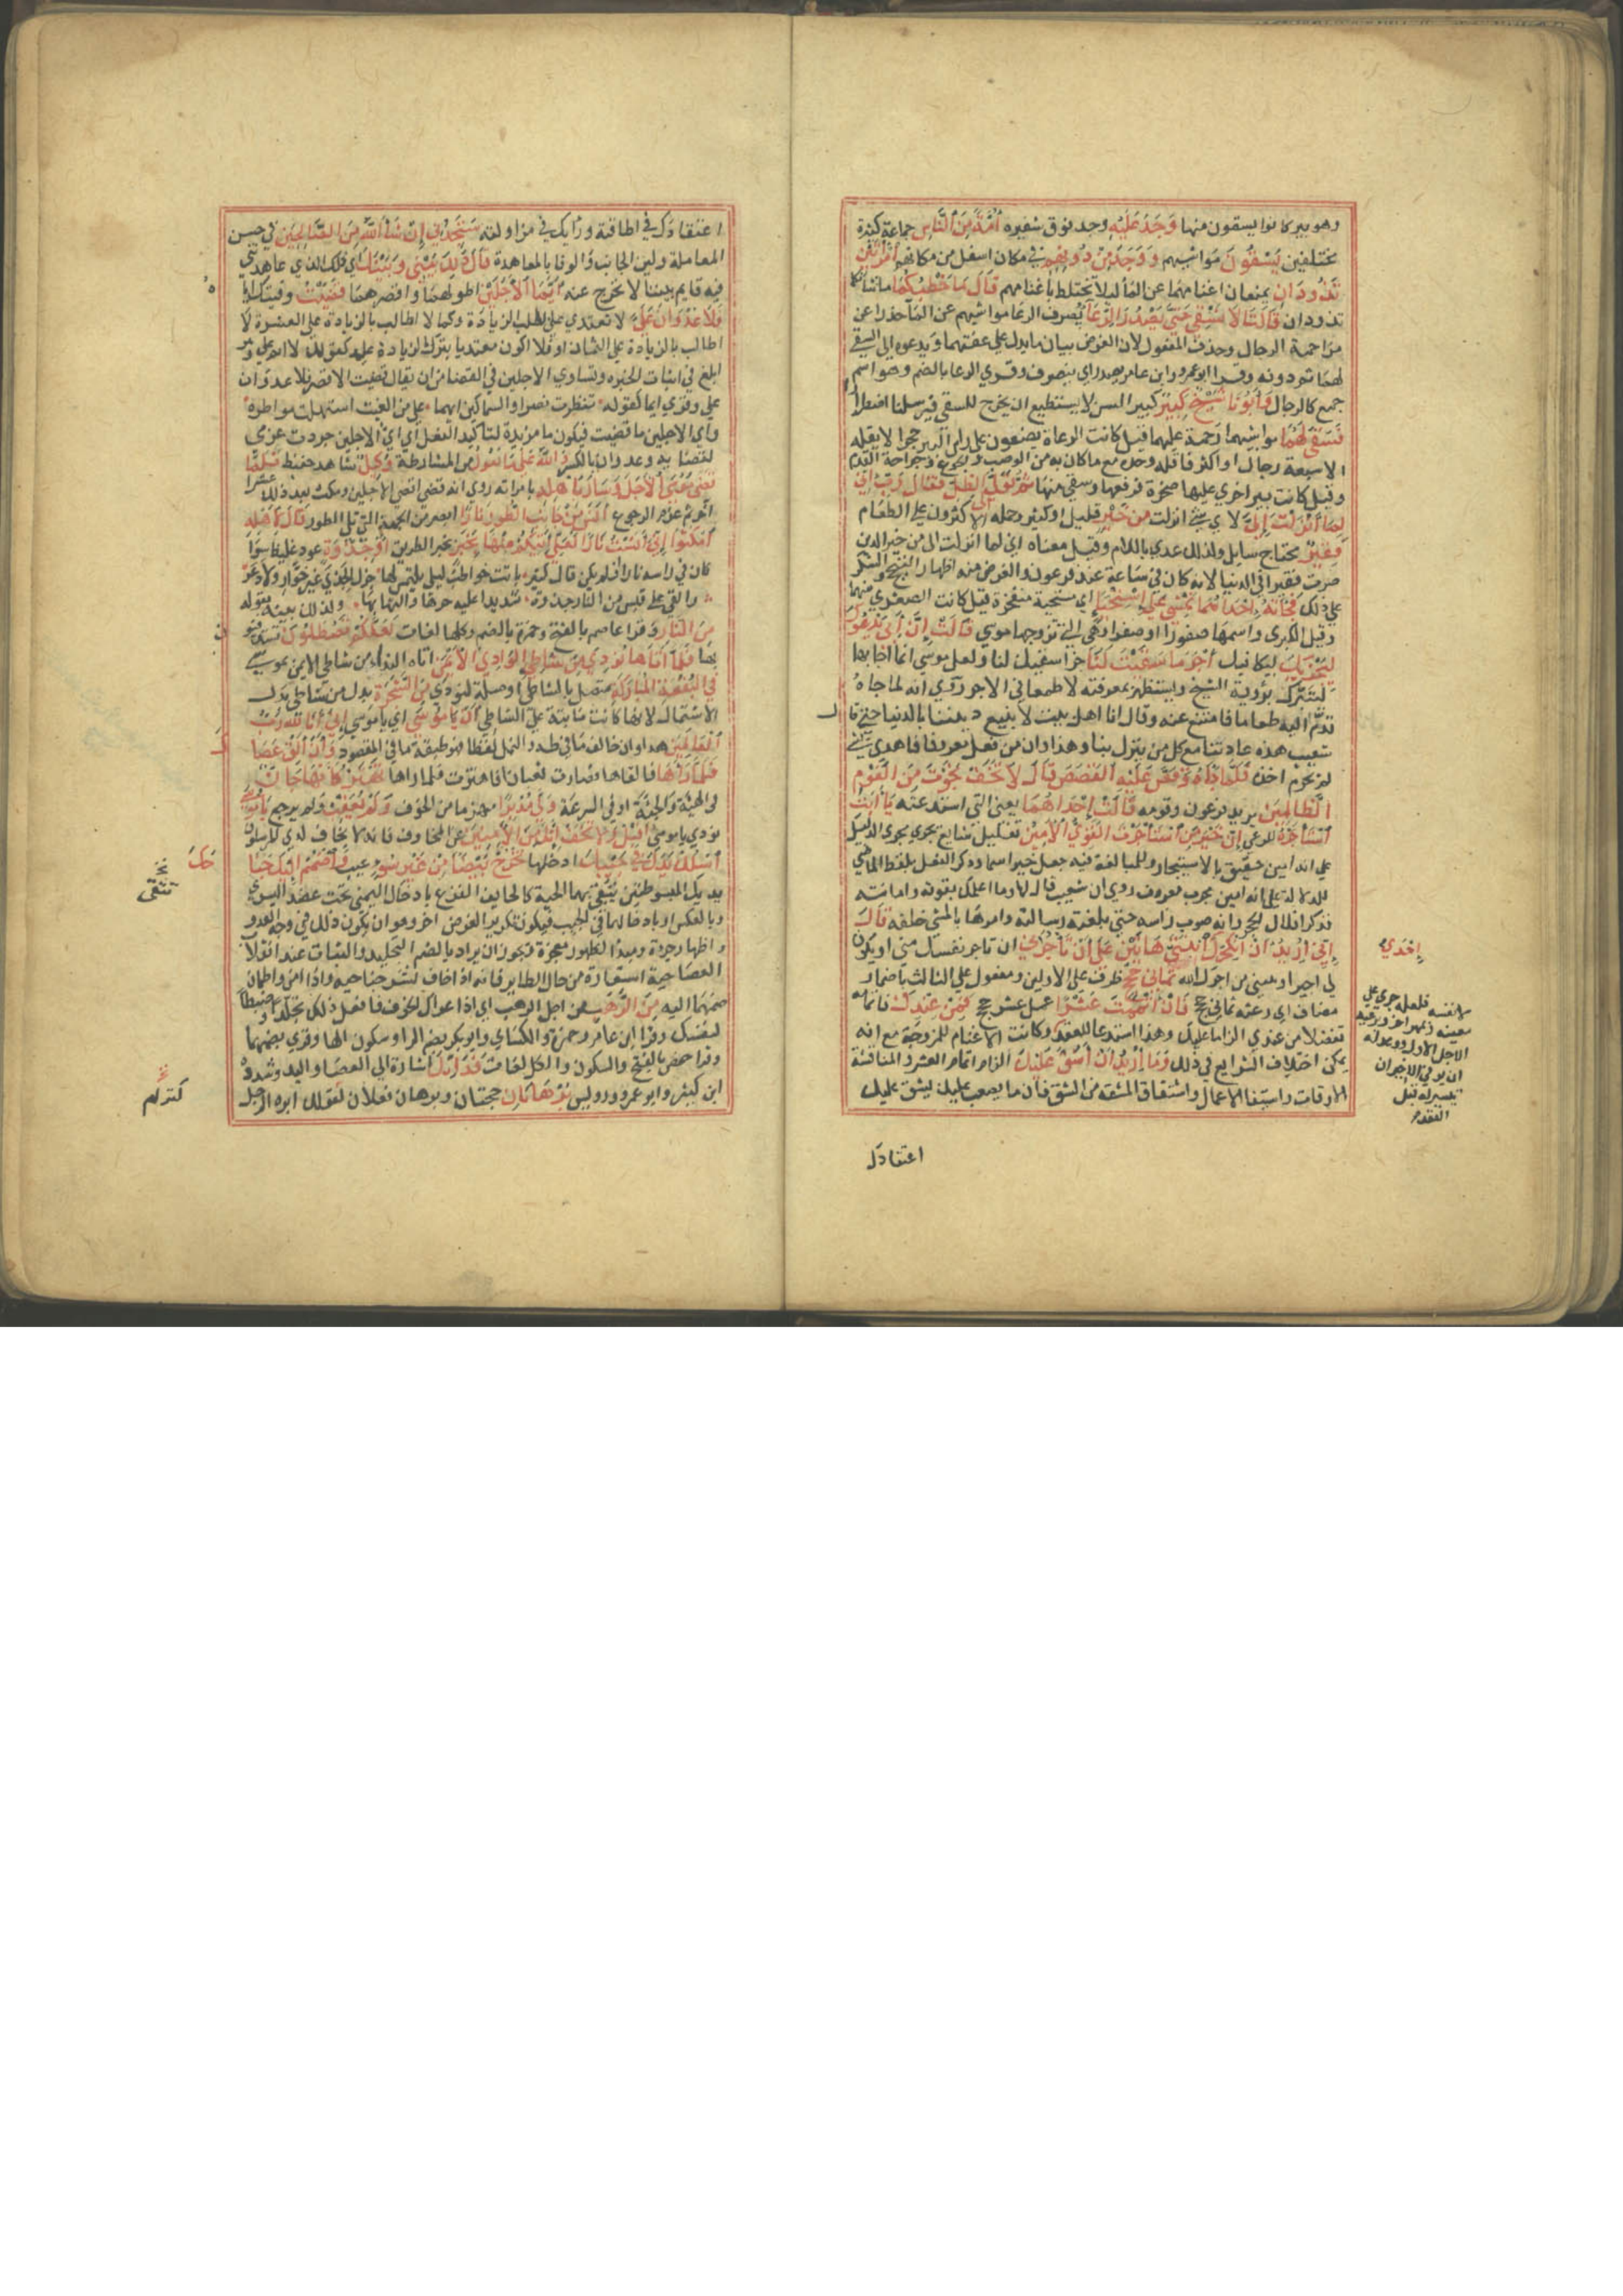 وهو بير كانوا يسقون منها وَجَدَ عَلَيْهِ وجد فوق شفيره أُمَّةً مِنَ النَّاسِ جماعة كثيرة
مختلفين يَسْقُونَ مواشيهم وَوَجَدَ مِنْ دُونِهِمُ في مكان اسفل من مكانهم امْرَأَتَيْنِ
تَذُودَانِ تمنعان اغنامهما عن الماء ليلا تختلط باغنامهم قَالَ مَا خَطْبُكُمَا ما شانكما
تذودان قَالَتَا لَا نَسْقِي حَتَّى يُصْدِرَ الرِّعَاءُ يصرف الرعا مواشيهم عن الماء حذرا عن
مزاحمة الرجال وحذف المفعول لان الغرض بيان ما يدل على عفتهما ويدعوه الى السقي
لهما ثم دونه وقرا ابو عمرو وابن عامر يصدر اي ينصرف وقري الرعا بالضم وهو اسم
جمع كالرجال وَأَبُونَا شَيْخٌ كَبِيرٌ كبير السن لا يستطيع ان يخرج للسقي فيرسلنا اضطرارا
فَسَقَى لَهُمَا مواشيهما رحمة عليهما قيل كانت الرعاة يضعون على راس البير حجرا لا يقله
الا سبعة رجال او اكثر فاقله وحده مع ما كان به من الوصب والجوع وجراحة القدم
وقيل كانت بير اخري عليها صخرة فرفعها وسقي منها ثُمَّ تَوَلَّى إِلَى الظِّلِّ فَقَالَ رَبِّ إِنِّي
لِمَا أَنْزَلْتَ إِلَيَّ لاي شي انزلت مِنْ خَيْرٍ قليل او كثير وحمله الاكثرون على الطعام
فَقِيرٌ محتاج سايل ولذلك عدي باللام وقيل معناه اني لما انزلت الي من خير الدين
صرت فقيرا في الدنيا لانه كان في ساعة عند فرعون والغرض منه اظهار التبجح والشكر
على ذلك فَجَاءَتْهُ إِحْدَاهُمَا تَمْشِي عَلَى اسْتِحْيَاءٍ اي مستحية متخفرة قيل كانت الصغري منهما
وقيل الكبري واسمها صفورا او صفرا وهي التي تزوجها موسي قَالَتْ إِنَّ أَبِي يَدْعُوكَ
لِيَجْزِيَكَ ليكافيك أَجْرَ مَا سَقَيْتَ لَنَا جزا سقيك لنا ولعل موسي انما اجابها
ليتبرك برؤية الشيخ ويستظهر بمعرفته لا طمعا في الاجر روي انه لما جاه
قدم اليه طعاما فامتنع عنه وقال انا اهل بيت لا نبيع ديننا بالدنيا حتى قا
شعيب هذه عادتنا مع كل من ينزل بنا وهذا وان من فعل معروفا فاهدي بشي
لم يحرم اخذه فَلَمَّا جَاءَهُ وَقَصَّ عَلَيْهِ الْقَصَصَ قَالَ لَا تَخَفْ نَجَوْتَ مِنَ الْقَوْمِ
الظَّالِمِينَ يريد فرعون وقومه قَالَتْ إِحْدَاهُمَا يعني التي استدعته يَا أَبَتِ
اسْتَأْجِرْهُ للرعي إِنَّ خَيْرَ مَنِ اسْتَأْجَرْتَ الْقَوِيُّ الْأَمِينُ تعليل شايع يجري مجري الدليل
علي انه امين حقيق بالاستيجار وللمبالغة فيه جعل خير اسما وذكر الفعل بلفظ الماضي
للدلالة على انه امين مجرب معروف روي ان شعيبا قال لها وما اعلمك بقوته وامانته
فذكر اقلال الحجر وانه صوب راسه حتي بلغته رسالته وامرها بالمشي خلفه قَالَ
إِنِّي أُرِيدُ أَنْ أُنْكِحَكَ ابْنَتَيَّ هَاتَيْنِ عَلَى أَنْ تَأْجُرَنِي ان تاجر نفسك مني او تكون
لي اجيرا او يثيبني من اجرك الله ثَمَانِيَ حِجَجٍ ظرف علي الاولين ومفعول علي الثالث باضمار
مضاف اي رعية ثماني حجج فَإِنْ أَتْمَمْتَ عَشْرًا عمل عشر حجج فَمِنْ عِنْدِكَ فاتمامه
تفضلا من عندي الزاما عليك وهذا استدعا للعقد وكانت الاغنام للمزوجة مع انه
يمكن اختلاف الشرايع في ذلك وَمَا أُرِيدُ أَنْ أَشُقَّ عَلَيْكَ الزام اتمام العشر والمناقشة
الاوقات واستيفا الاعمال واشتقاق المشقة من الشق فان ما يصعب عليك يشق عليك
إحدي
لا نفسه فلعله جري علي
معينة بمهر اخر ورعيه
الاجل الاول ووعد له
ان يوفي الاخير ان
تيسر له قبل
العقد
اعتقادك
اعتقادك في اطاقته ورايك في مزاولته سَتَجِدُنِي إِنْ شَاءَ اللَّهُ مِنَ الصَّالِحِينَ في حسن
المعاملة ولين الجانب والوفا بالمعاهدة قَالَ ذَلِكَ بَيْنِي وَبَيْنَكَ اي ذلك الذي عاهدتني
فيه قايم بيننا لا نخرج عنه أَيَّمَا الْأَجَلَيْنِ اطولهما واقصرهما قَضَيْتُ وفيتك اياه
فَلَا عُدْوَانَ عَلَيَّ لا تعتدي علي بطلب الزيادة وكما لا اطالب بالزيادة على العشرة لا
اطالب بالزيادة علي الثمان او فلا اكون معتديا بترك الزيادة عليه كقولك لا اثم علي وهو
ابلغ في اثبات الخيرة وتساوي الاجلين في القضا من ان يقال قضيت الاقصر فلا عدوان
علي وقري ايما كقوله تنظرت نصرا والسماكين ايهما علي من الغيث استهلت مواطره
واي الاجلين ما قضيت فيكون ما مزيدة لتاكيد الفعل اي اي الاجلين جردت عزمي
لقضايه وعدوان بالكسر وَاللَّهُ عَلَى مَا نَقُولُ من المشارطة وَكِيلٌ شاهد حفيظ فَلَمَّا
قَضَى مُوسَى الْأَجَلَ وَسَارَ بِأَهْلِهِ بامراته روي انه قضي اقصي الاجلين ومكث بعد ذلك عشرا
اخري ثم عزم الرجوع آنَسَ مِنْ جَانِبِ الطُّورِ نَارًا ابصر من الجهة التي تلي الطور قَالَ لِأَهْلِهِ
امْكُثُوا إِنِّي آنَسْتُ نَارًا لَعَلِّي آتِيكُمْ مِنْهَا بِخَبَرٍ بخبر الطريق أَوْ جَذْوَةٍ عود غليظ سوا
كان في راسه نار او لم يكن قال كثير باتت حواطب ليلي يلتمسن لها جزل الجذي غير خوار ولا دعر
والقي علي قبس من النار جذوة شديدا عليه حرها والتهابها ولذلك بينه بقوله
مِنَ النَّارِ وقرا عاصم بالفتح وحمزة بالضم وكلها لغات لَعَلَّكُمْ تَصْطَلُونَ تستدفئو
بها فَلَمَّا أَتَاهَا نُودِيَ مِنْ شَاطِئِ الْوَادِي الْأَيْمَنِ اتاه النداء من شاطي الايمن لموسي
فِي الْبُقْعَةِ الْمُبَارَكَةِ متصل بالشاطي او صلة لنودي مِنَ الشَّجَرَةِ بدل من شاطي بدل
الاشتمال لانها كانت ثابتة علي الشاطي أَنْ يَا مُوسَى اي يا موسي إِنِّي أَنَا اللَّهُ رَبُّ
الْعَالَمِينَ هذا وان خالف ما في طه والنمل لفظا فهو طبقه ما في المقصود وَأَنْ أَلْقِ عَصَاكَ
فَلَمَّا رَآهَا فالقاها فصارت ثعبانا فاهتزت فلما راها تَهْتَزُّ كَأَنَّهَا جَانٌّ
في الهيئة والجثة او في السرعة وَلَّى مُدْبِرًا منهزما من الخوف وَلَمْ يُعَقِّبْ ولم يرجع يَا مُوسَى
نودي يا موسي أَقْبِلْ وَلَا تَخَفْ إِنَّكَ مِنَ الْآمِنِينَ من المخاوف فانه لا يخاف لدي المرسلون
اسْلُكْ يَدَكَ فِي جَيْبِكَ ادخلها تَخْرُجْ بَيْضَاءَ مِنْ غَيْرِ سُوءٍ عيب وَاضْمُمْ إِلَيْكَ جَنَا
يديك المبسوطتين تتقي بهما الحية كالخايف الفزع بادخال اليمني تحت عضد اليسري
وبالعكس او بادخالهما في الجيب فيكون تكريرا لغرض اخر وهو ان يكون ذلك في وجه العدو
واظهار جرءة ومبدا لظهور معجزة ويجوز ان يراد بالضم التجلد والثبات عند انقلاب
العصا حية استعارة من حال الطاير فانه اذا خاف نشر جناحيه واذا امن واطمان
ضمهما اليه مِنَ الرَّهْبِ من اجل الرهب اي اذا عراك الخوف فافعل ذلك تجلدا وضبطا
لنفسك وقرا ابن عامر وحمزة والكساي وابو بكر بضم الرا وسكون الها وقري بضمهما
وقرا حفص بالفتح والسكون والكل لغات فَذَانِكَ اشارة الى العصا واليد وشدده
ابن كثير وابو عمرو ورويس بُرْهَانَانِ حجتان وبرهان فعلان لقولك ابره الرجل
حَكَ
تتقى